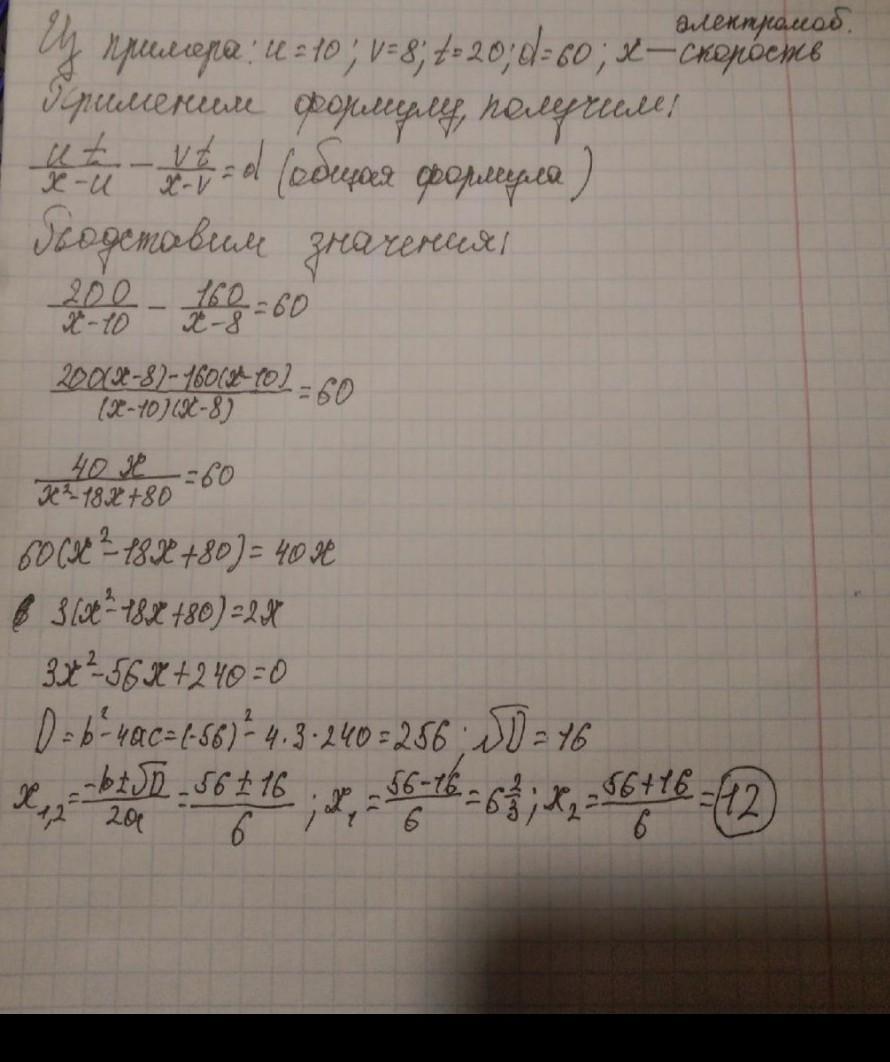 электромоб.
Из примера: u=10; v=8; t=20; d=60; x — скорость
Применим формулу, получим:
ut/(x-u) - vt/(x-v) = d (общая формула)
Подставим значения:
200/(x-10) - 160/(x-8) = 60
(200(x-8)-160(x-10))/((x-10)(x-8)) = 60
40x/(x²-18x+80) = 60
60(x²-18x+80) = 40x
3(x²-18x+80)=2x
3x²-56x+240=0
D=b²-4ac=(-56)²-4·3·240=256; √D=16
x₁,₂=(-b±√D)/2a=(56±16)/6; x₁=(56-16)/6=6 2/3; x₂=(56+16)/6=12